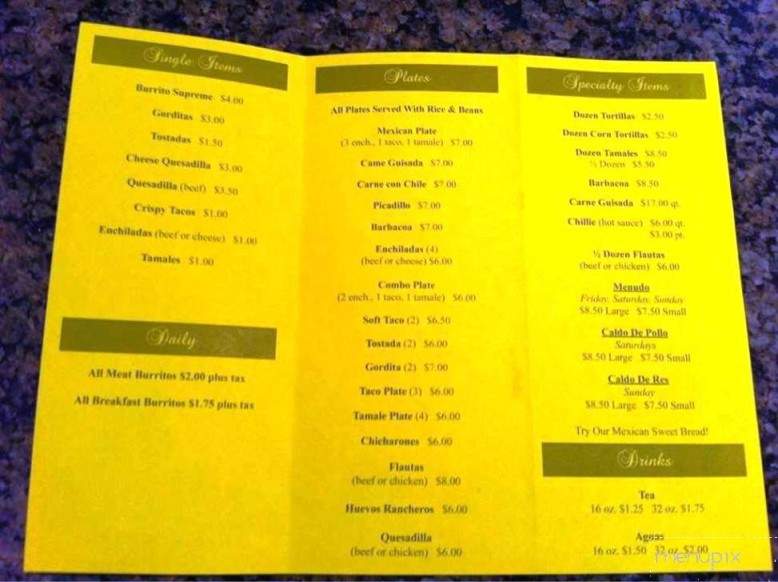 Single Items
Burrito Supreme $4.00
Gorditas $3.00
Tostadas $1.50
Cheese Quesadilla $3.00
Quesadilla (beef) $3.50
Crispy Tacos $1.00
Enchiladas (beef or cheese) $1.00
Tamales $1.00
Daily
All Meat Burritos $2.00 plus tax
All Breakfast Burritos $1.75 plus tax
Plates
All Plates Served With Rice & Beans
Mexican Plate
(3 ench., 1 taco, 1 tamale) $7.00
Carne Guisada $7.00
Carne con Chile $7.00
Picadillo $7.00
Barbacoa $7.00
Enchiladas (4)
(beef or cheese) $6.00
Combo Plate
(2 ench., 1 taco, 1 tamale) $6.00
Soft Taco (2) $6.50
Tostada (2) $6.00
Gordita (2) $7.00
Taco Plate (3) $6.00
Tamale Plate (4) $6.00
Chicharones $6.00
Flautas
(beef or chicken) $8.00
Huevos Rancheros $6.00
Quesadilla
(beef or chicken) $6.00
Specialty Items
Dozen Tortillas $2.50
Dozen Corn Tortillas $2.50
Dozen Tamales $8.50
½ Dozen $5.50
Barbacoa $8.50
Carne Guisada $17.00 qt.
Chillie (hot sauce) $6.00 qt.
$3.00 pt.
½ Dozen Flautas
(beef or chicken) $6.00
Menudo
Friday, Saturday, Sunday
$8.50 Large $7.50 Small
Caldo De Pollo
Saturdays
$8.50 Large $7.50 Small
Caldo De Res
Sunday
$8.50 Large $7.50 Small
Try Our Mexican Sweet Bread!
Drinks
Tea
16 oz. $1.25 32 oz. $1.75
Aguas
16 oz. $1.50 32 oz. $2.00
menupix